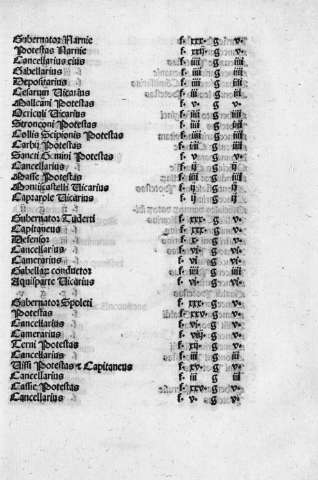 Gubernator Narnie f. xxx. g v.
Potestas Narnie f. xxij. g v.
Cancellarius eius f. iiij g iiij
Gabellarius f. iiij g iiij
Depositarius f. iiij g iiij
Cesarum Vicarius f. iiij g iiij
Malleani Potestas f. v. g v.
Ocriculi Vicarius f. iiij g iiij
Stronconi Potestas f. iiij g iiij
Collis Scipionis Potestas f. iiij g iiij
Carbij Potestas f. iiij g iiij
Sancti Gemini Potestas f. v g v.
Cancellarius f. ij g ij
Masse Potestas f. iiij g iiij
Montijcastelli Vicarius f. ij g ij
Caprarole Vicarius f. ij g ij
Gubernator Tuderti f. xxx. g v.
Capitaneus f. xxx. g v.
Defensor f. x. g v.
Cancellarius f. vi. g v.
Camerarius f. vi. g v.
Gabellar conductor f. iiij g iiij
Aquisparte Vicarius f. vi. g v.
Gubernator Spoleti f. xxx. g v.
Potestas f. xxv. g v.
Cancellarius f. vi. g v.
Camerarius f. viij. g v.
Terni Potestas f. xij. g v.
Cancellarius f. iiij g iiij
Vissi Potestas & Capitaneus f. xv. g v.
Cancellarius f. iij g iij
Cassie Potestas f. xxv. g v.
Cancellarius f. v. g v.